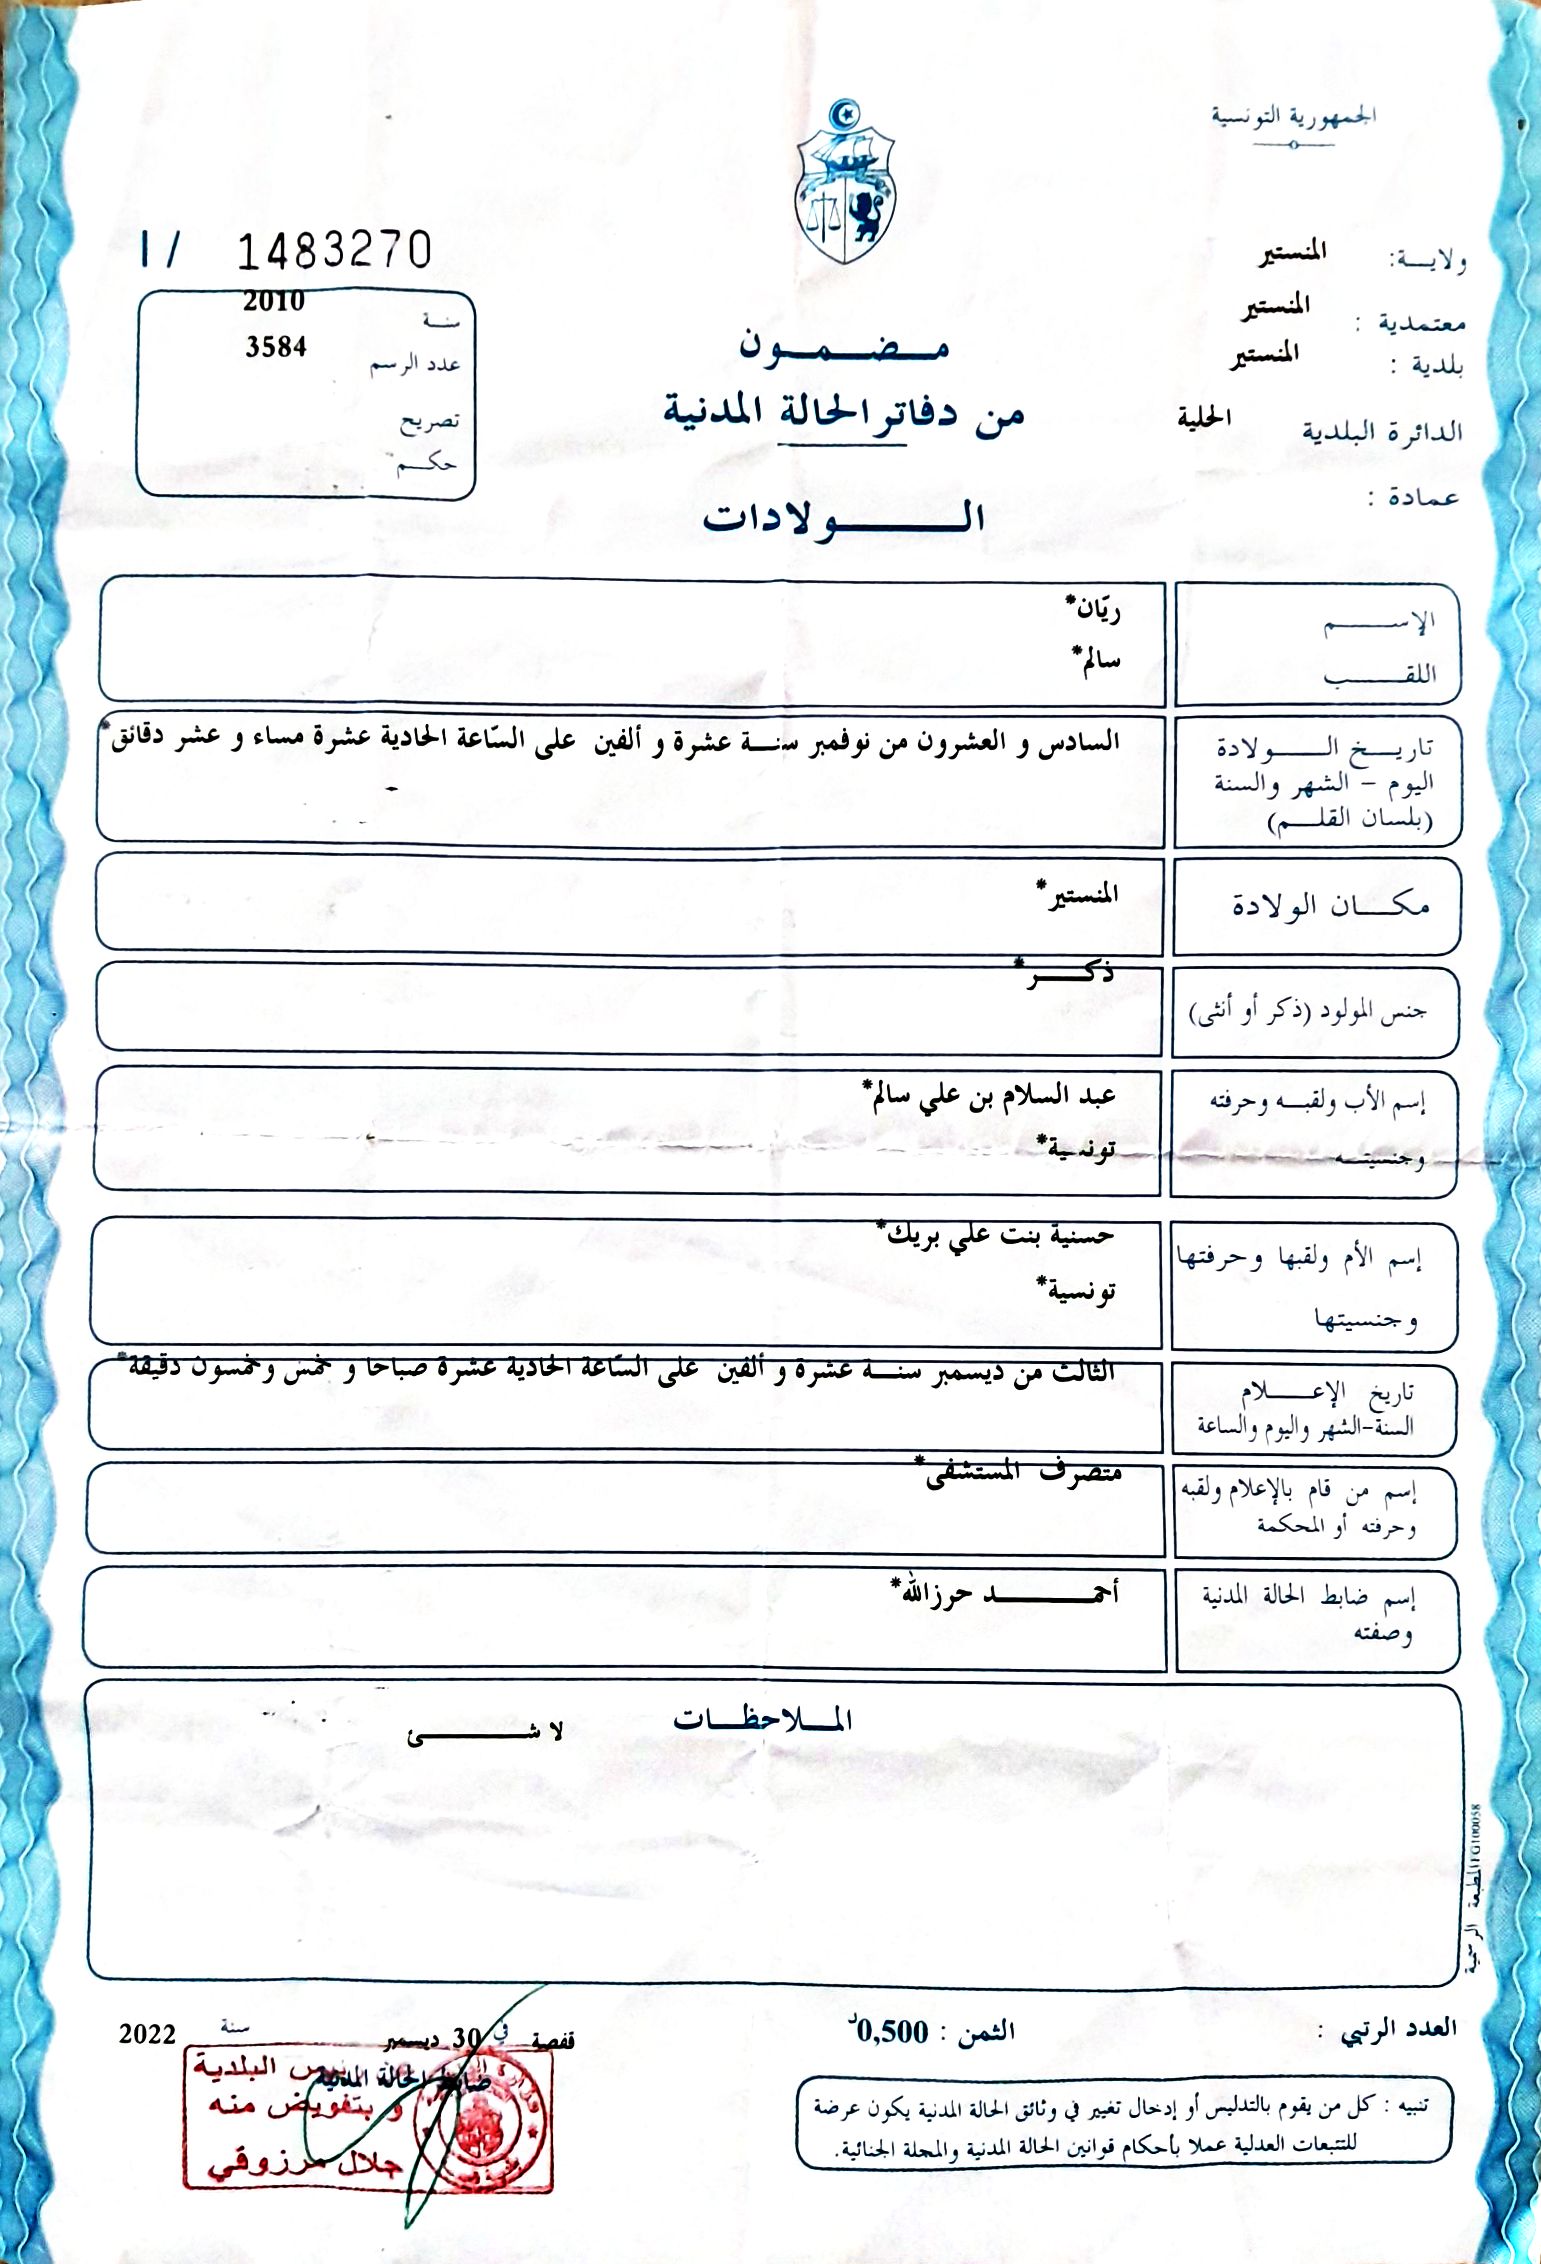 الجمهورية التونسية
ولايــة: المنستير
معتمدية : المنستير
بلدية : المنستير
الدائرة البلدية الحلية
عمادة :
I / 1483270
سنـة 2010
عدد الرسم 3584
تصريح
حكــم
مـــضـــمـــون
من دفاتر الحالة المدنية
الـــــولادات
الإســـــم ريّان*
اللقـــــب سالم*
تاريــخ الـــــولادة
اليوم - الشهر والسنة
(بلسان القلـــم)
السادس و العشرون من نوفمبر سنـــة عشرة و ألفين على السّاعة الحادية عشرة مساء و عشر دقائق*
مكـــان الولادة المنستير*
جنس المولود (ذكر أو أنثى) ذكـــــر*
إسم الأب ولقبـــه وحرفته عبد السلام بن علي سالم*
وجنسيتـــه تونسية*
إسم الأم ولقبها وحرفتها حسنية بنت علي بريك*
وجنسيتها تونسية*
تاريخ الإعـــــلام
السنة-الشهر واليوم والساعة
الثالث من ديسمبر سنـــة عشرة و ألفين على السّاعة الحادية عشرة صباحا و خمس وخمسون دقيقة*
إسم من قام بالإعلام ولقبه
وحرفته أو المحكمة
متصرف المستشفى*
إسم ضابط الحالة المدنية
وصفته
أحمـــــــد حرزالله*
المـــلاحظـــات
لا شـــــــئ
المطبعة الرسمية IFG100058
العدد الرتبي :
الثمن : 0,500د
قفصة في 30 ديسمبر سنة 2022
ضابط الحالة المدنية
رئيس البلدية
و بتفويض منه
جلال مرزوقي
تنبيه : كل من يقوم بالتدليس أو إدخال تغيير في وثائق الحالة المدنية يكون عرضة
للتتبعات العدلية عملا بأحكام قوانين الحالة المدنية والمجلة الجنائية.